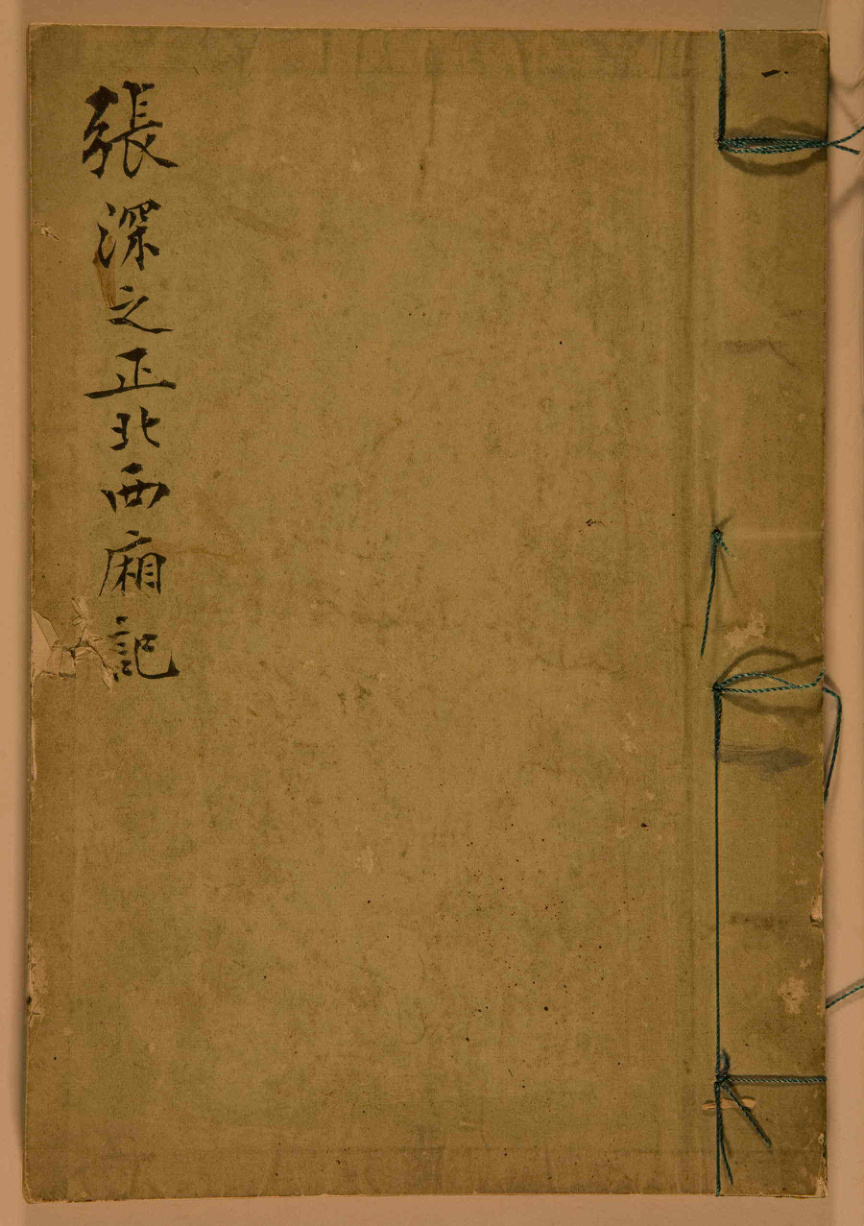 一
張深之正北西廂記